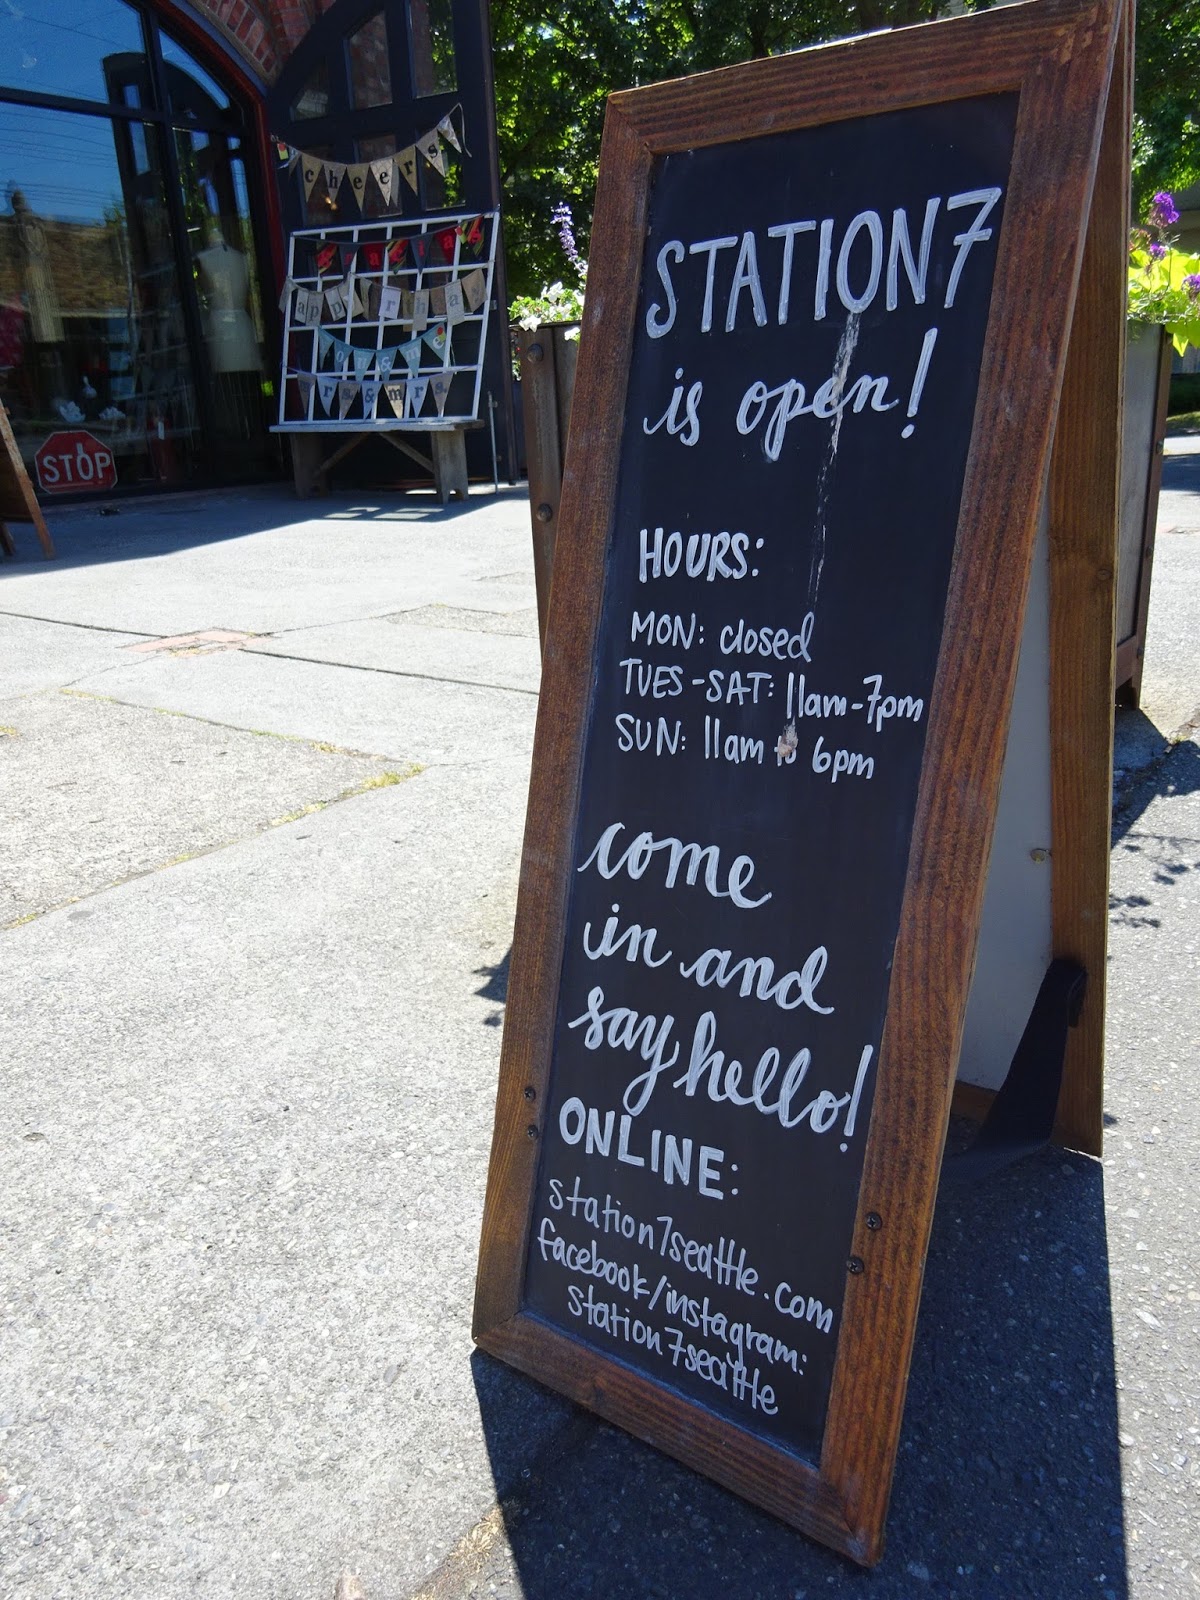 STATION7
is open!
HOURS:
MON: closed
TUES-SAT: 11am-7pm
SUN: 11am to 6pm
come
in and
say hello!
ONLINE:
station7seattle.com
facebook/instagram:
station7seattle
cheers
STOP